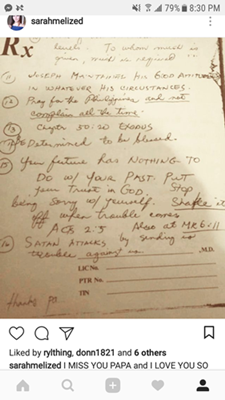 79% 8:30 PM
sarahmelized
Rx
level. To whom much is
given, much is required
11 JOSEPH MAINTAINED HIS GOD
IN WHATEVER HIS CIRCUMSTANCES.
12 Pray for the Philippines and not
complain all the time.
13 Chapter 50:20 EXODUS
14 Determined to be blessed.
15 Your future HAS NOTHING TO
DO W/ YOUR PAST. PUT
your TRUST IN GOD. Stop
being sorry w/ yourself. Shake it
off when trouble comes
ACTS 28:5 Also at MK 6:11
16 SATAN ATTACKS by sending
trouble against us
, M.D.
LIC No.
PTR No.
TIN
thanks po
Liked by rylthing, donn1821 and 6 others
sarahmelized I MISS YOU PAPA and I LOVE YOU SO